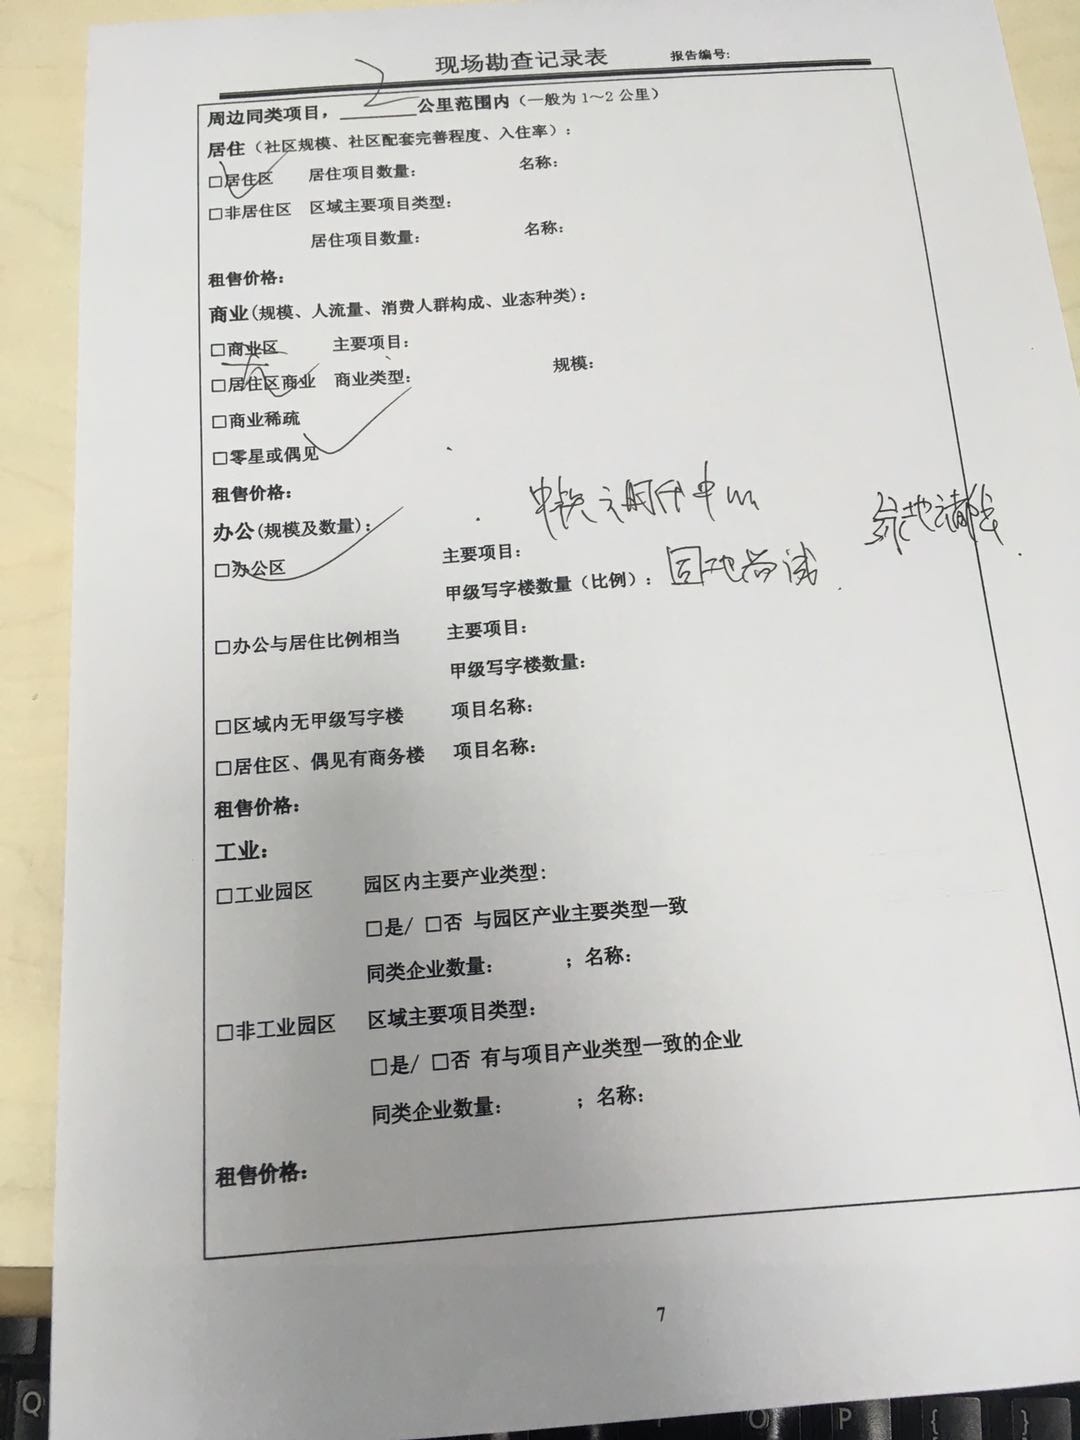 现场勘查记录表 报告编号:
周边同类项目，2公里范围内（一般为1～2公里）
居住（社区规模、社区配套完善程度、入住率）:
□居住区 居住项目数量: 名称:
□非居住区 区域主要项目类型:
居住项目数量: 名称:
租售价格:
商业(规模、人流量、消费人群构成、业态种类):
□商业区 主要项目:
□居住区商业 商业类型: 规模:
□商业稀疏
□零星或偶见
租售价格:
办公(规模及数量):
□办公区 主要项目:
甲级写字楼数量（比例）:
□办公与居住比例相当 主要项目:
甲级写字楼数量:
□区域内无甲级写字楼 项目名称:
□居住区、偶见有商务楼 项目名称:
租售价格:
工业:
□工业园区 园区内主要产业类型:
□是/ □否 与园区产业主要类型一致
同类企业数量: ；名称:
□非工业园区 区域主要项目类型:
□是/ □否 有与项目产业类型一致的企业
同类企业数量: ；名称:
租售价格:
7
Q
O
P
{
}